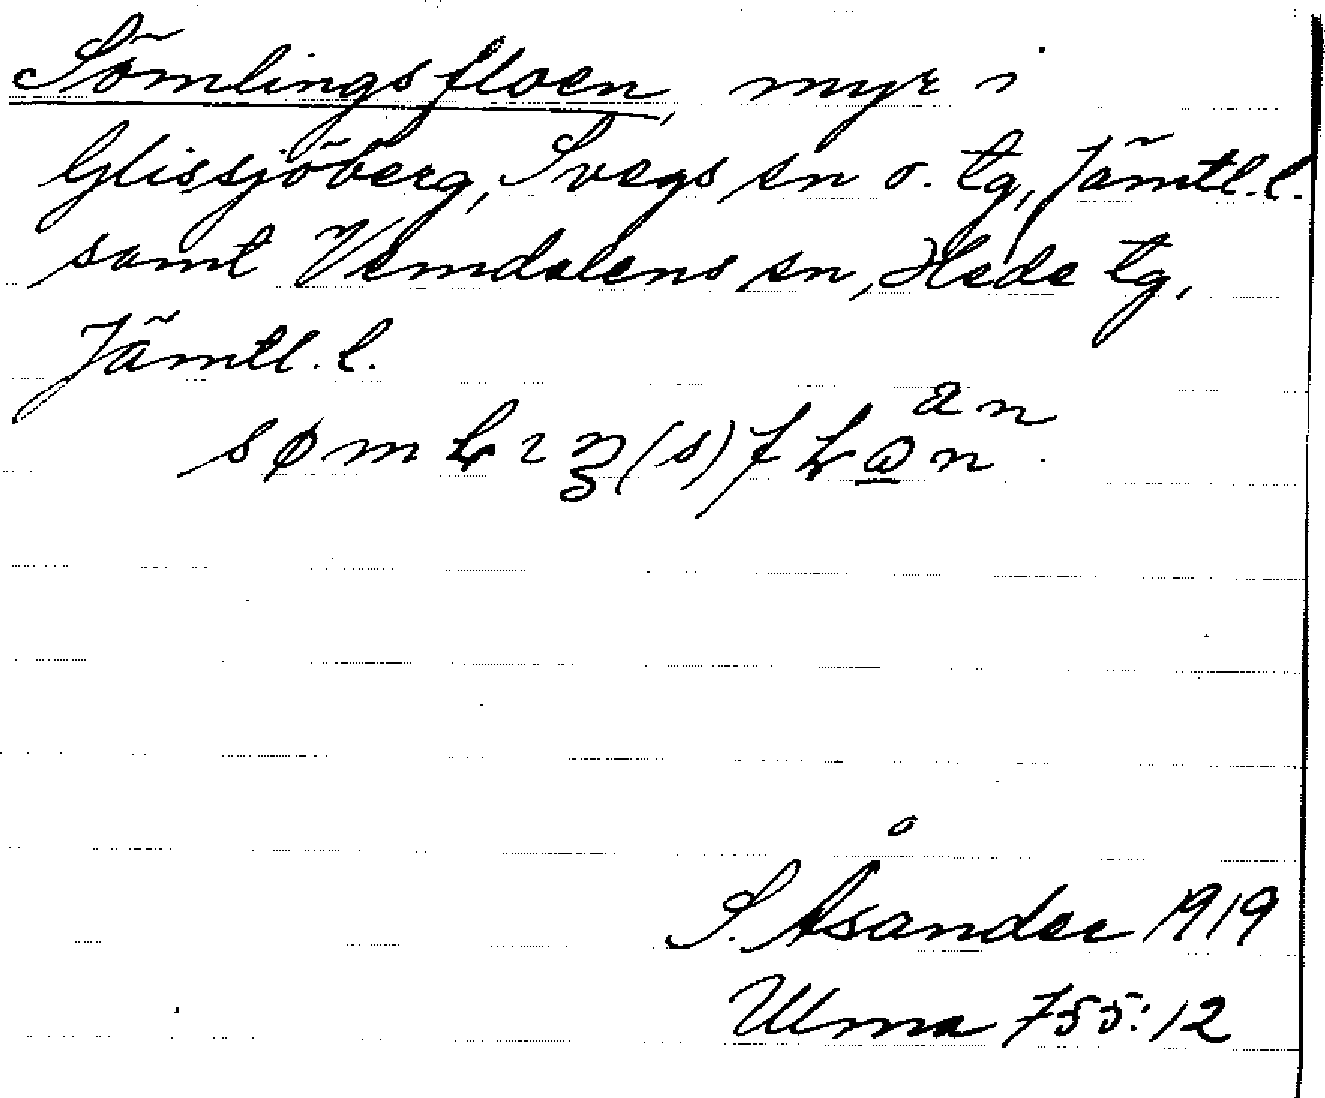 Sömlingsfloen, myr i
Glissjöberg, Svegs sn o. tg, Jämtl.l.
samt Vemdalens sn, Hede tg,
Jämtl. l.
S. Åsander 1919
Ulma 755:12